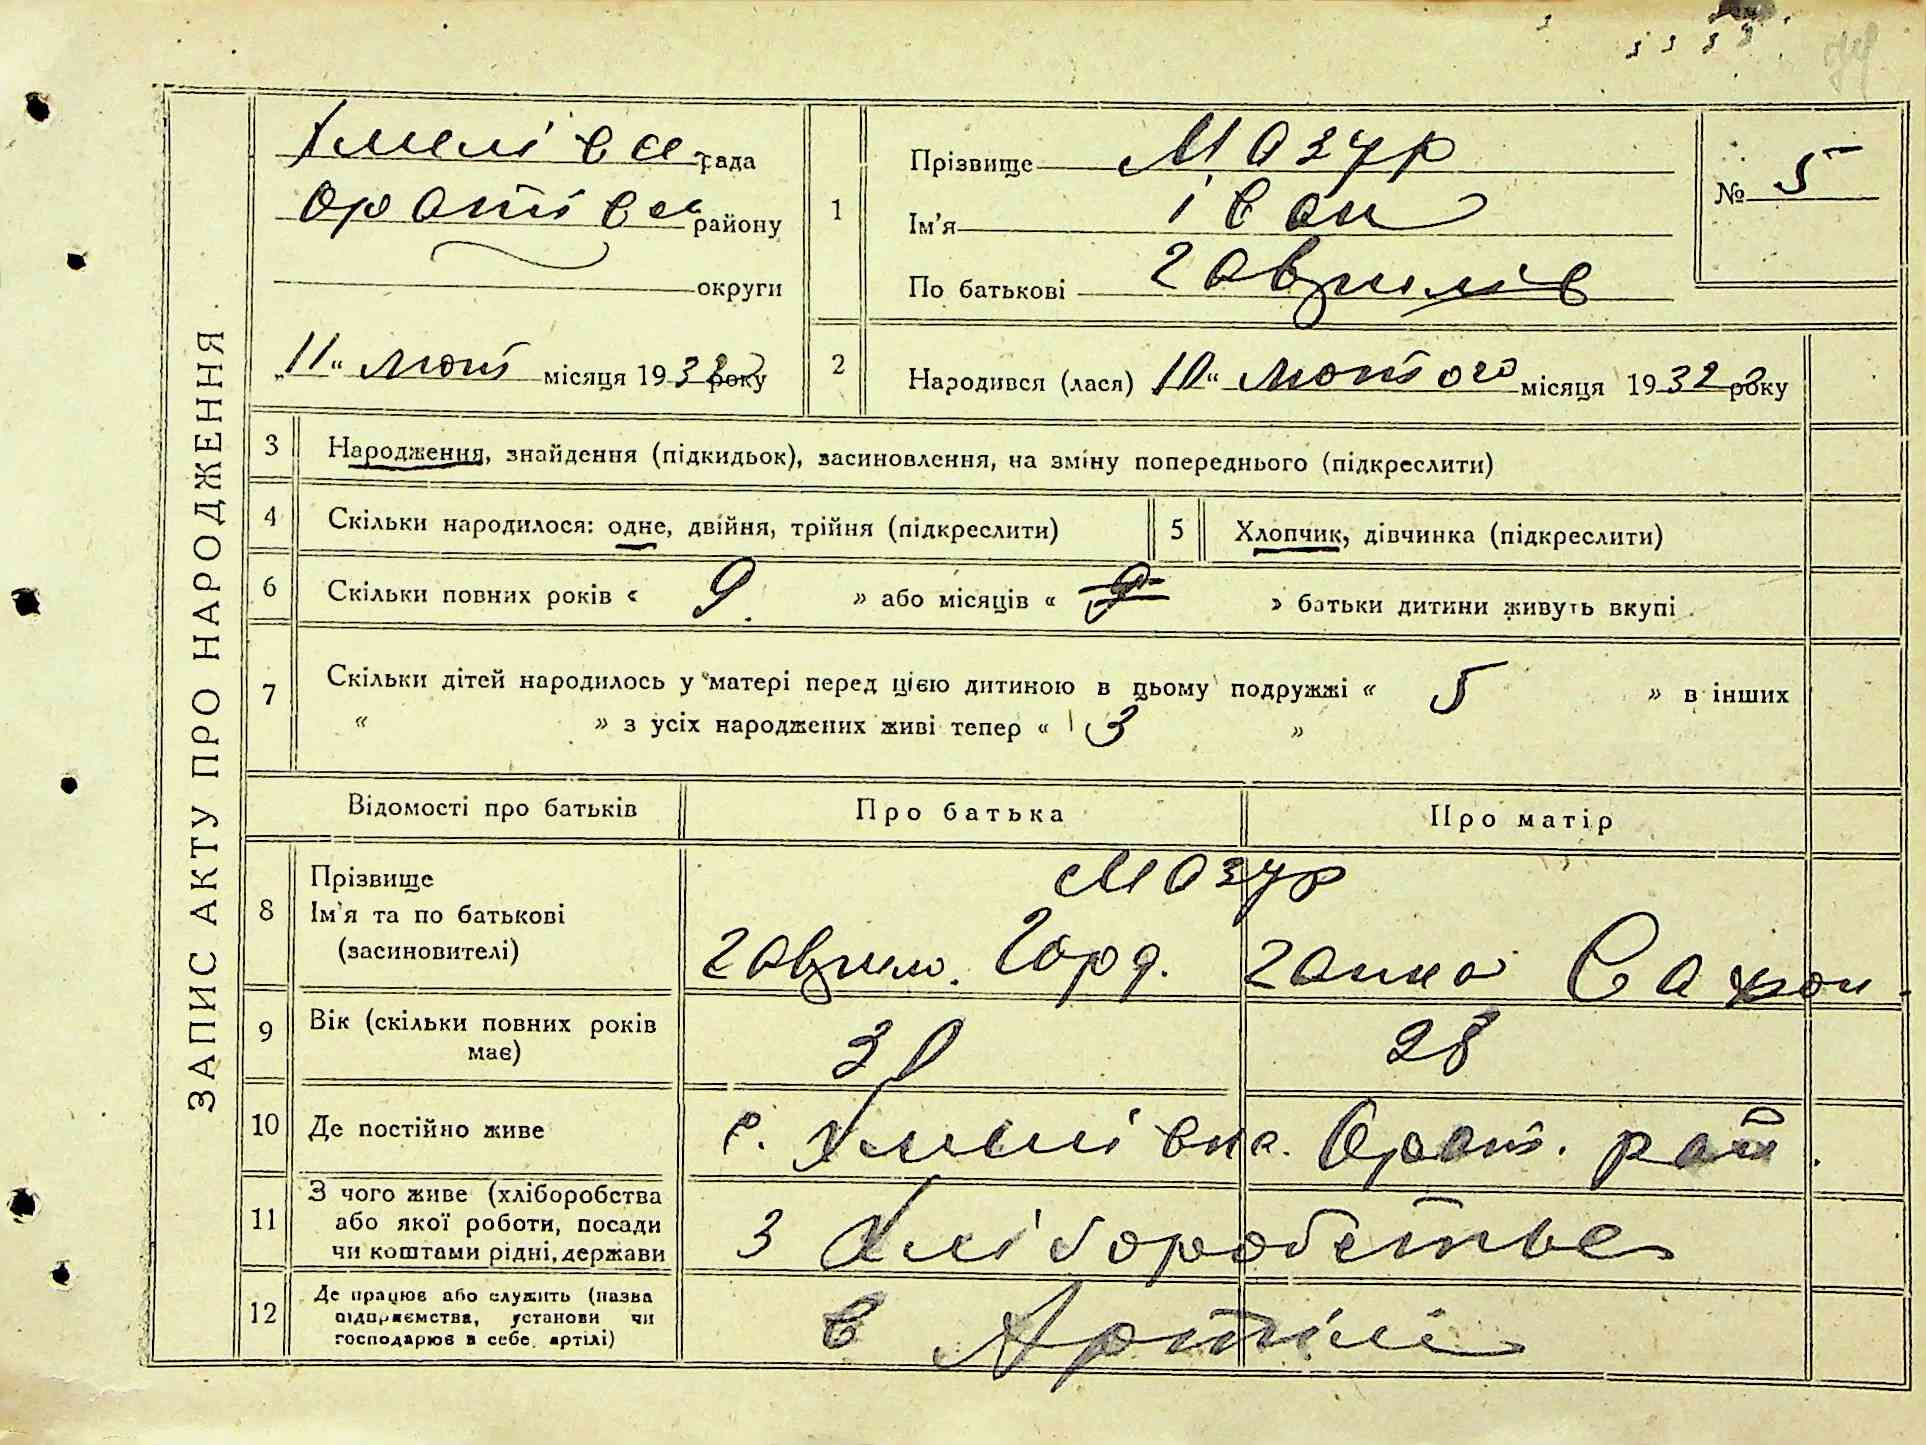 ЗАПИС АКТУ ПРО НАРОДЖЕННЯ
Хмелівс рада
Оратівс району
округи
„11“ лют місяця 1932 року
1
Прізвище Мазур
Ім'я Іван
По батькові Гаврилів
№ 5
2
Народився (лася) 10“ лютого місяця 1932 року
3 Народження, знайдення (підкидьок), засиновлення, на зміну попереднього (підкреслити)
4 Скільки народилося: одне, двійня, трійня (підкреслити)
5 Хлопчик, дівчинка (підкреслити)
6 Скільки повних років « 9. » або місяців « 9 » батьки дитини живуть вкупі
7 Скільки дітей народилось у матері перед цією дитиною в цьому подружжі « 5 » в інших
« » з усіх народжених живі тепер « 3 »
Відомості про батьків Про батька Про матір
8 Прізвище
Ім'я та по батькові
(засиновителі)
Мазур
Гаврил. Горд. Ганна
9 Вік (скільки повних років
має)
30 28
10 Де постійно живе с. Хмелівка. Орат. рай.
11 З чого живе (хліборобства
або якої роботи, посади
чи коштами рідні, держави
З Хліборобства
12 Де працює або служить (назва
підприємства, установи чи
господарює в себе, артілі)
в Артілі